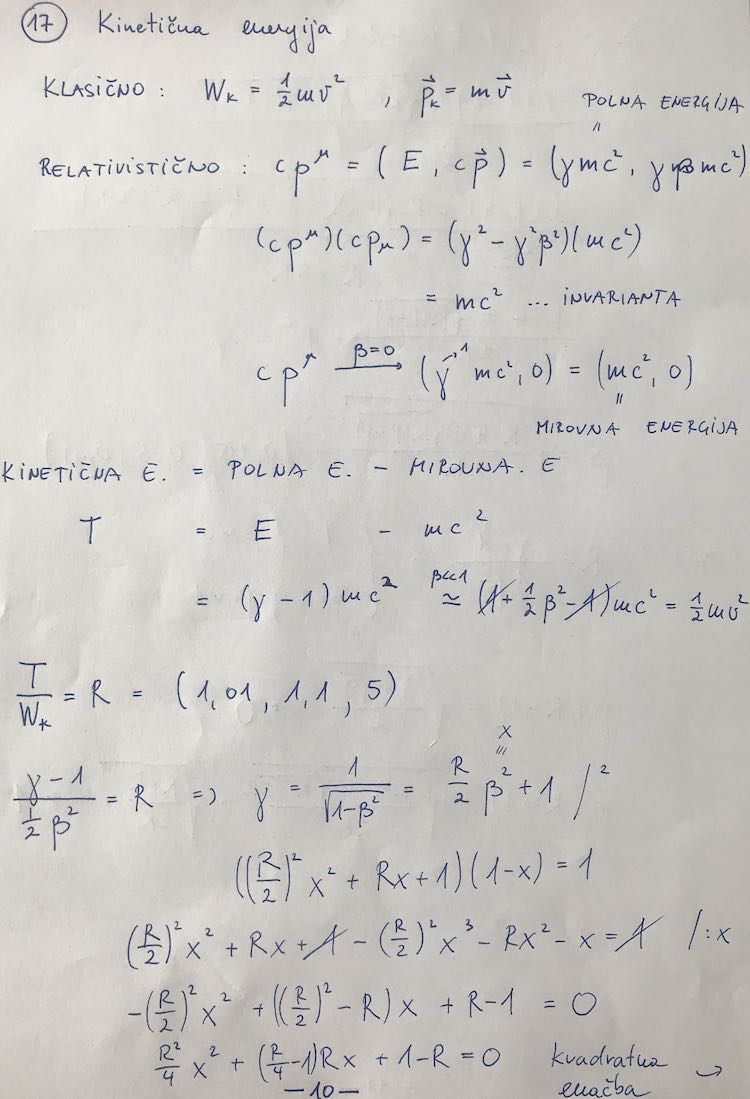 17 Kinetična energija
KLASIČNO : W_K = 1/2 mv² , p⃗_K = m v⃗
POLNA ENERGIJA
=
RELATIVISTIČNO : c p^μ = (E, c p⃗) = (γmc², γβmc²)
(c p^μ)(c p_μ) = (γ² - γ²β²)(mc²)
= mc² ... INVARIANTA
c p^μ →^{β=0} (γ^{→1} mc², 0) = (mc², 0)
=
MIROVNA ENERGIJA
KINETIČNA E. = POLNA E. - MIROVNA. E
T = E - mc²
= (γ - 1) mc² ≃^{β<<1} (1 + 1/2 β² - 1) mc² = 1/2 mv²
T/W_K = R = (1,01, 1,1, 5)
x
≡
(γ - 1)/(1/2 β²) = R => γ = 1/√(1-β²) = R/2 β² + 1 /²
((R/2)² x² + Rx + 1)(1-x) = 1
(R/2)² x² + Rx + 1 - (R/2)² x³ - Rx² - x = 1 /:x
-(R/2)² x² + ((R/2)² - R)x + R-1 = 0
R²/4 x² + (R/4 - 1)Rx + 1-R = 0 kvadratna →
enačba
—10—